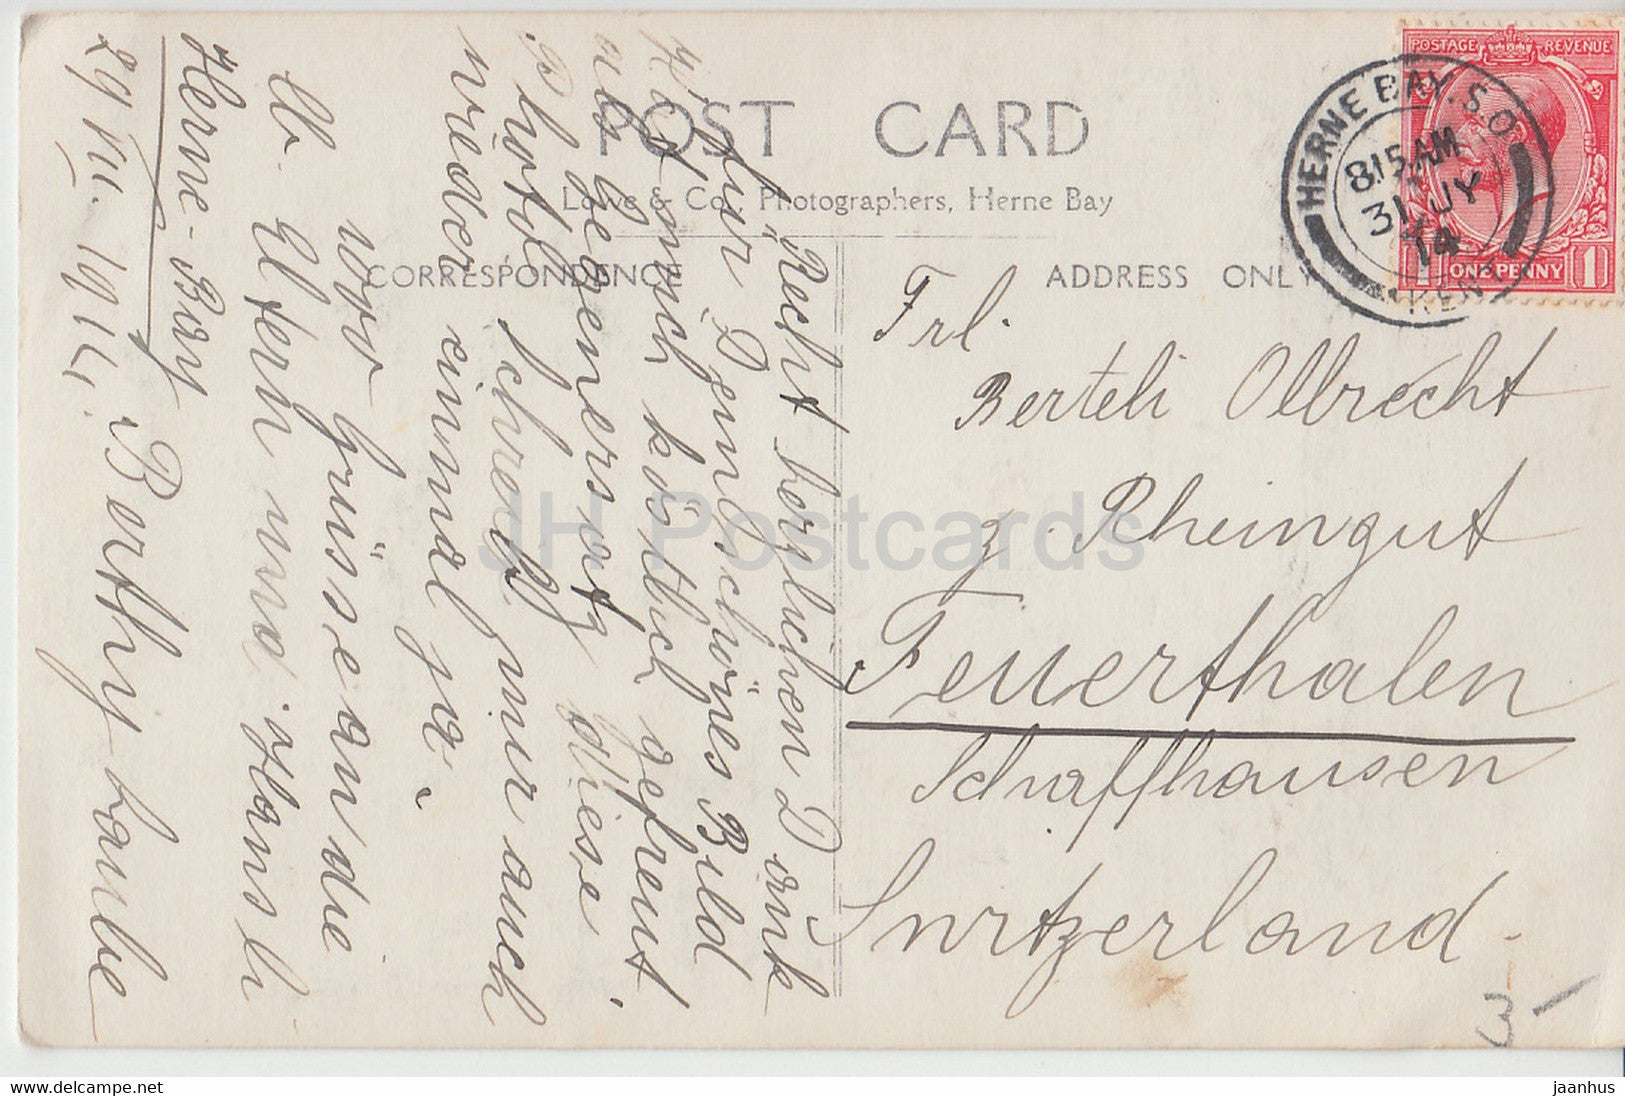 POST CARD
Lowe & Co., Photographers, Herne Bay
CORRESPONDENCE
ADDRESS ONLY
POSTAGE REVENUE
1 ONE PENNY 1
HERNE BAY. S.O.
8.15 AM
31 JY
14
KENT
Frl.
Berteli Ollbrecht
z. Rheingut
Feuerthalen
Schaffhausen
Switzerland
Recht herzlichen Dank
für Dein schönes Bild
Hat mich köstlich gefreut,
als Gegenersatz diese
Photo. Schreib mir auch
wieder einmal ja.
Grüsse an die
lb. Eltern und Hans
Herne-Bay
29 VII. 1914. Berthy
JH Postcards
3
jaanhus